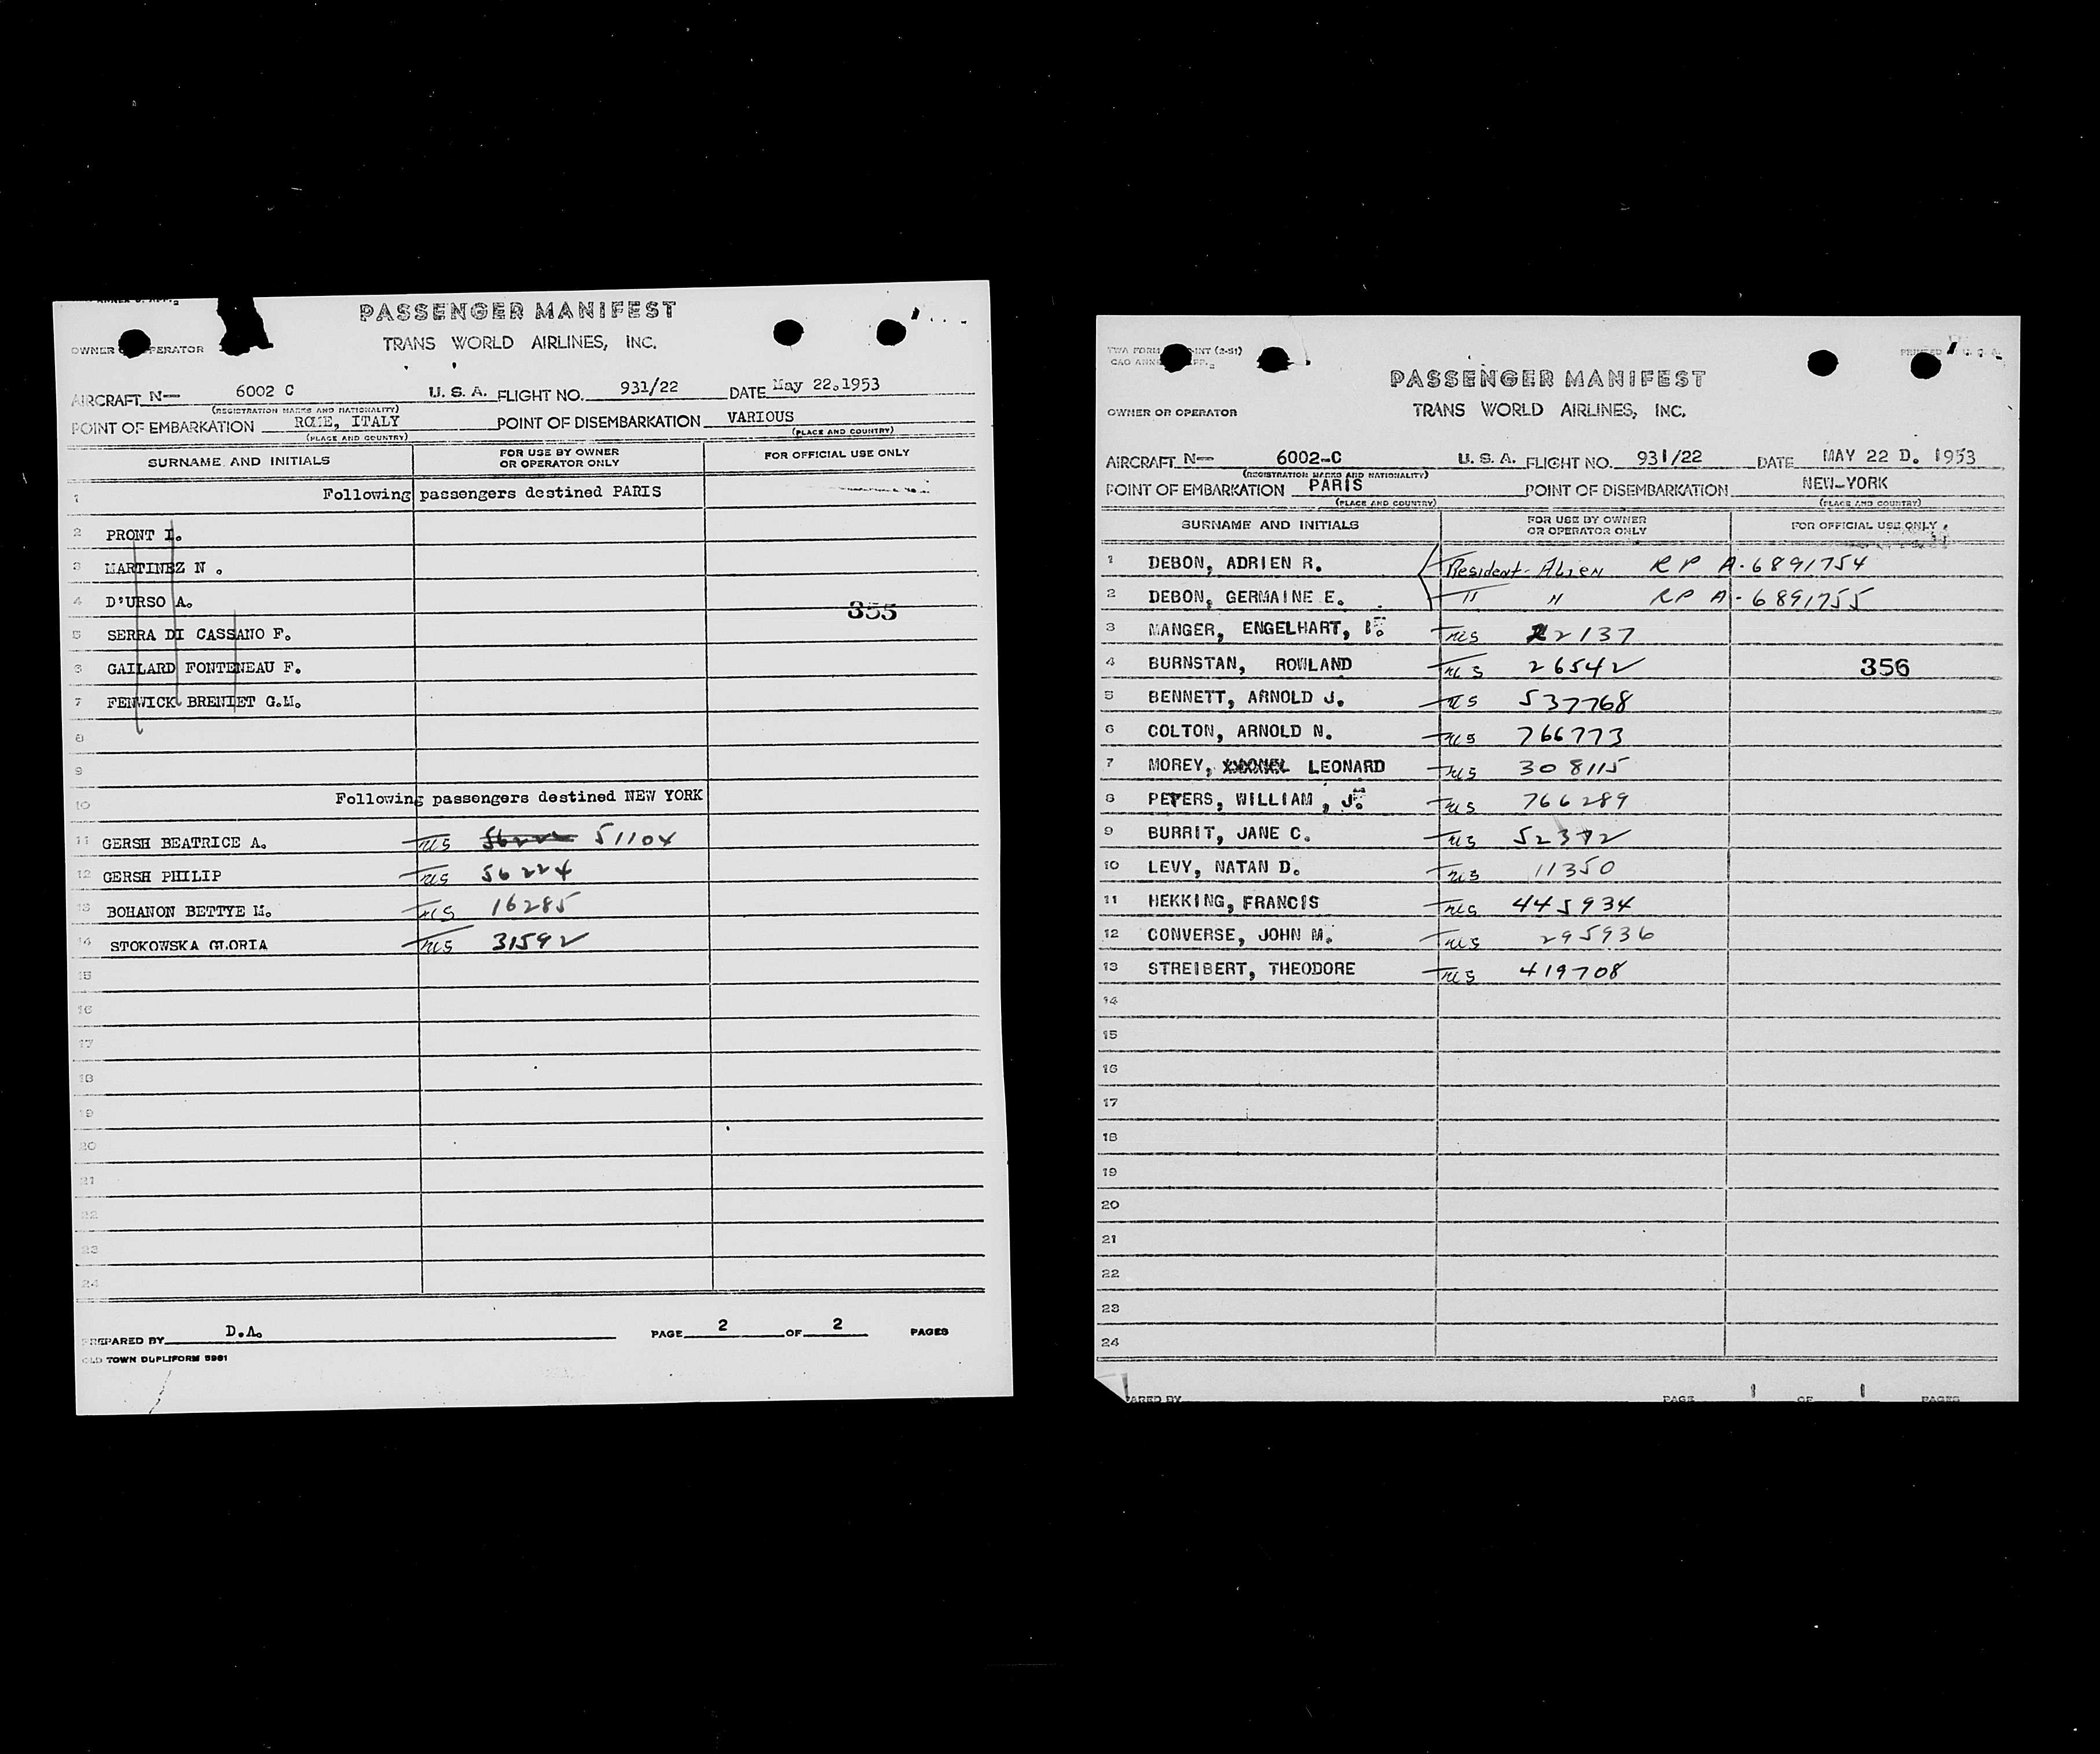 PASSENGER MANIFEST
TRANS WORLD AIRLINES, INC.
OWNER OPERATOR
AIRCRAFT N— 6002 C U. S. A. FLIGHT NO. 931/22 DATE May 22.1953
(REGISTRATION MARKS AND NATIONALITY)
POINT OF EMBARKATION ROME, ITALY POINT OF DISEMBARKATION VARIOUS
(PLACE AND COUNTRY) (PLACE AND COUNTRY)
SURNAME AND INITIALS FOR USE BY OWNER OR OPERATOR ONLY FOR OFFICIAL USE ONLY
1 Following passengers destined PARIS
2 PRONT I.
3 MARTINEZ N .
4 D'URSO A. 355
5 SERRA DI CASSANO F.
6 GAILARD FONTENEAU F.
7 FENWICK BRENIET G.M.
8
9
10 Following passengers destined NEW YORK
11 GERSH BEATRICE A. 51104
12 GERSH PHILIP 56224
13 BOHANON BETTYE M. 16285
14 STOKOWSKA GLORIA 31592
15
16
17
18
19
20
21
22
23
24
PREPARED BY D.A. PAGE 2 OF 2 PAGES
OLD TOWN DUPLIFORM 5981
TWA FORM INT (2-51)
CAO ANNEX
PRINTED U. S. A.
PASSENGER MANIFEST
TRANS WORLD AIRLINES, INC.
OWNER OR OPERATOR
AIRCRAFT N— 6002-C U. S. A. FLIGHT NO. 931/22 DATE MAY 22 D. 1953
(REGISTRATION MARKS AND NATIONALITY)
POINT OF EMBARKATION PARIS POINT OF DISEMBARKATION NEW-YORK
(PLACE AND COUNTRY) (PLACE AND COUNTRY)
SURNAME AND INITIALS FOR USE BY OWNER OR OPERATOR ONLY FOR OFFICIAL USE ONLY
1 DEBON, ADRIEN R. Resident-Alien RP A-6891754
2 DEBON, GERMAINE E. " " RP A-6891755
3 MANGER, ENGELHART, 22137
4 BURNSTAN, ROWLAND 26542 356
5 BENNETT, ARNOLD J. 537768
6 COLTON, ARNOLD N. 766773
7 MOREY, LEONARD 308115
8 PETERS, WILLIAM , Jr. 766289
9 BURRIT, JANE C. 52372
10 LEVY, NATAN D. 11350
11 HEKKING, FRANCIS 445934
12 CONVERSE, JOHN M. 295936
13 STREIBERT, THEODORE 419708
14
15
16
17
18
19
20
21
22
23
24
PARED BY PAGE 1 OF 1 PAGES